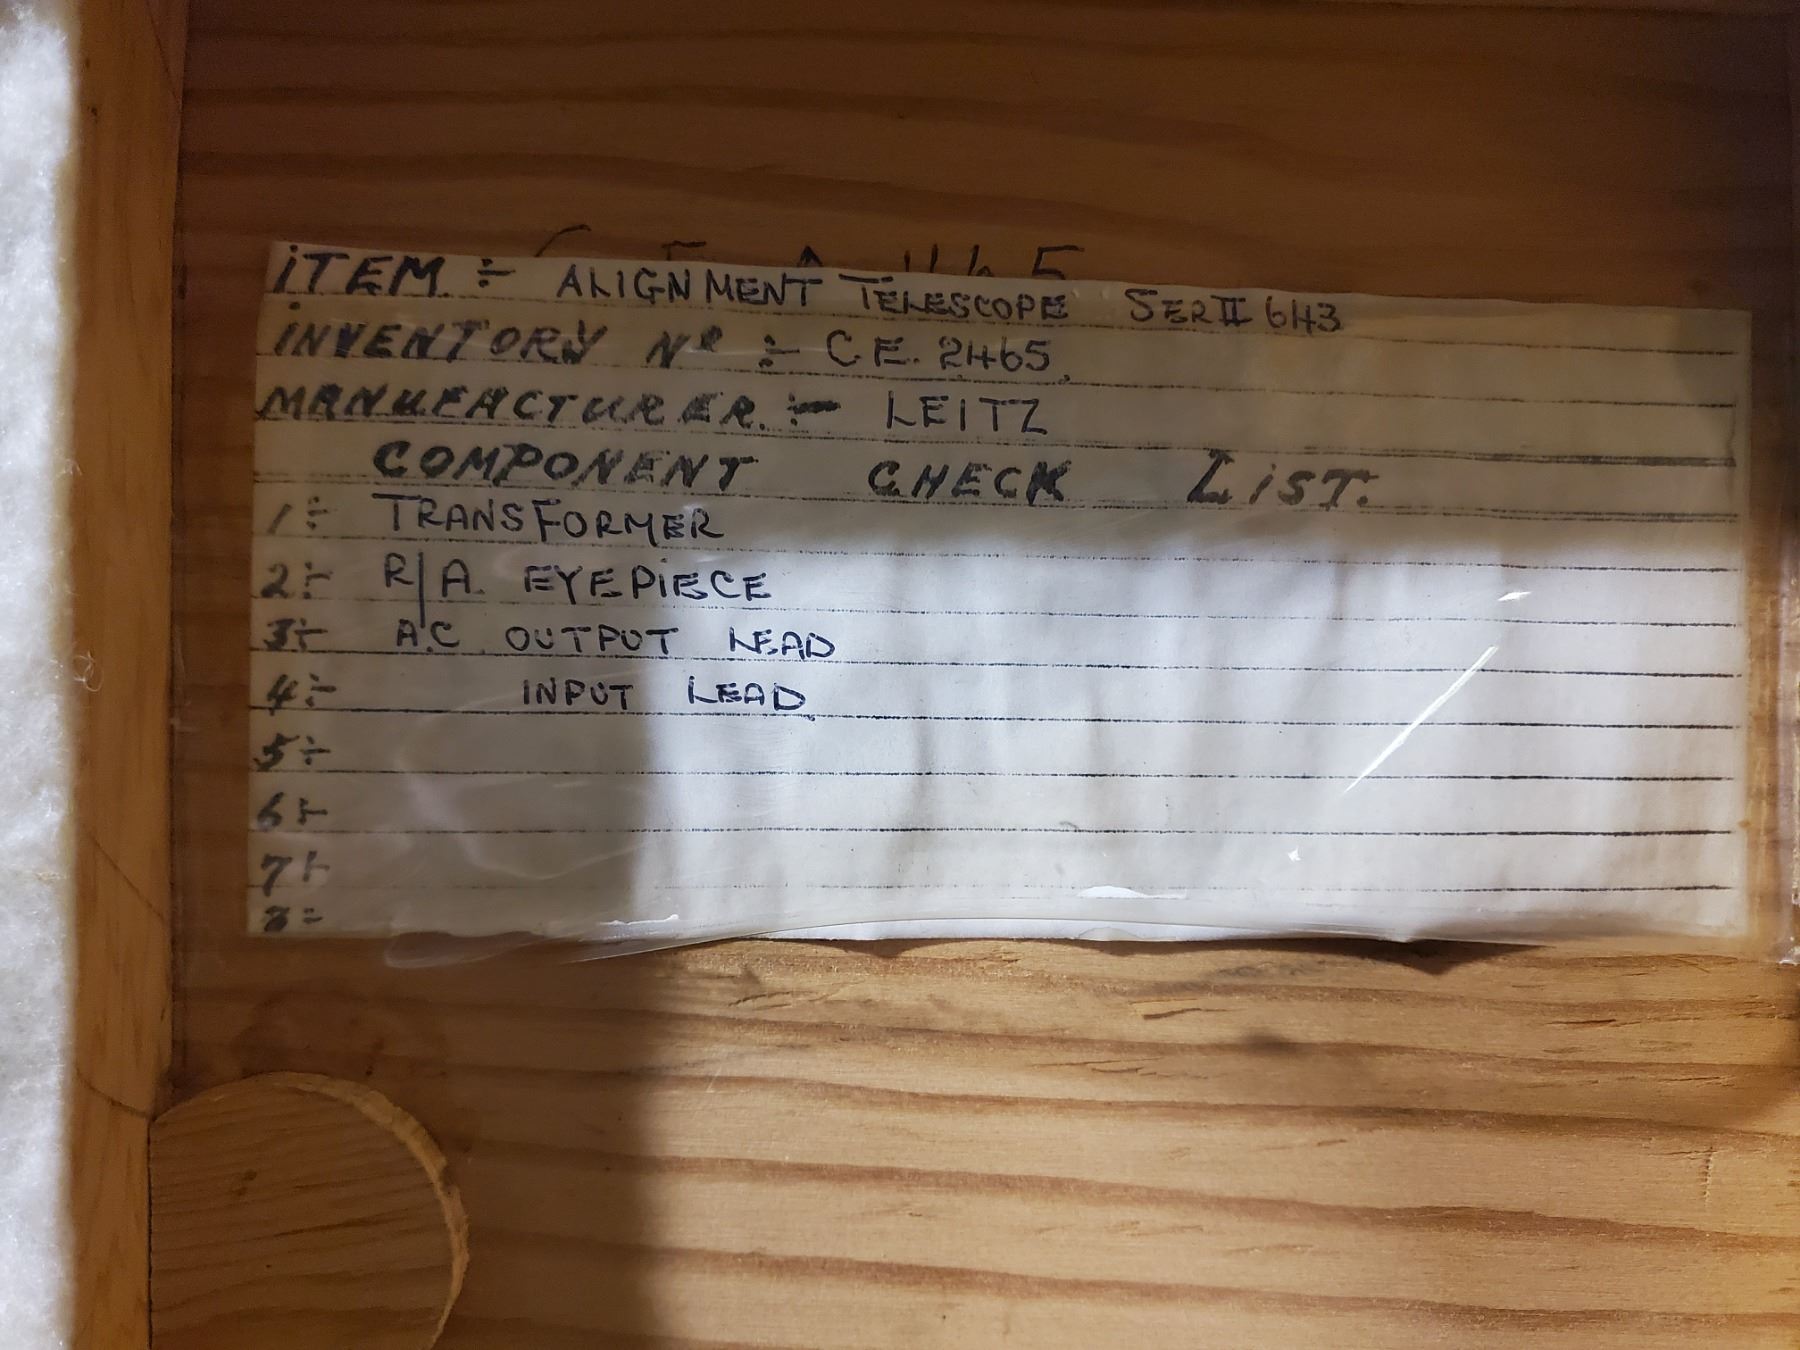 ITEM ÷ ALIGNMENT TELESCOPE SER II 643
INVENTORY Nº :- C.E. 2465.
MANUFACTURER. :- LEITZ
COMPONENT CHECK LIST.
1 ÷ TRANSFORMER
2 ÷ R/A. EYEPIECE
3 ÷ A.C OUTPUT LEAD
4 ÷ INPUT LEAD.
5 ÷
6 ÷
7 ÷
8 ÷